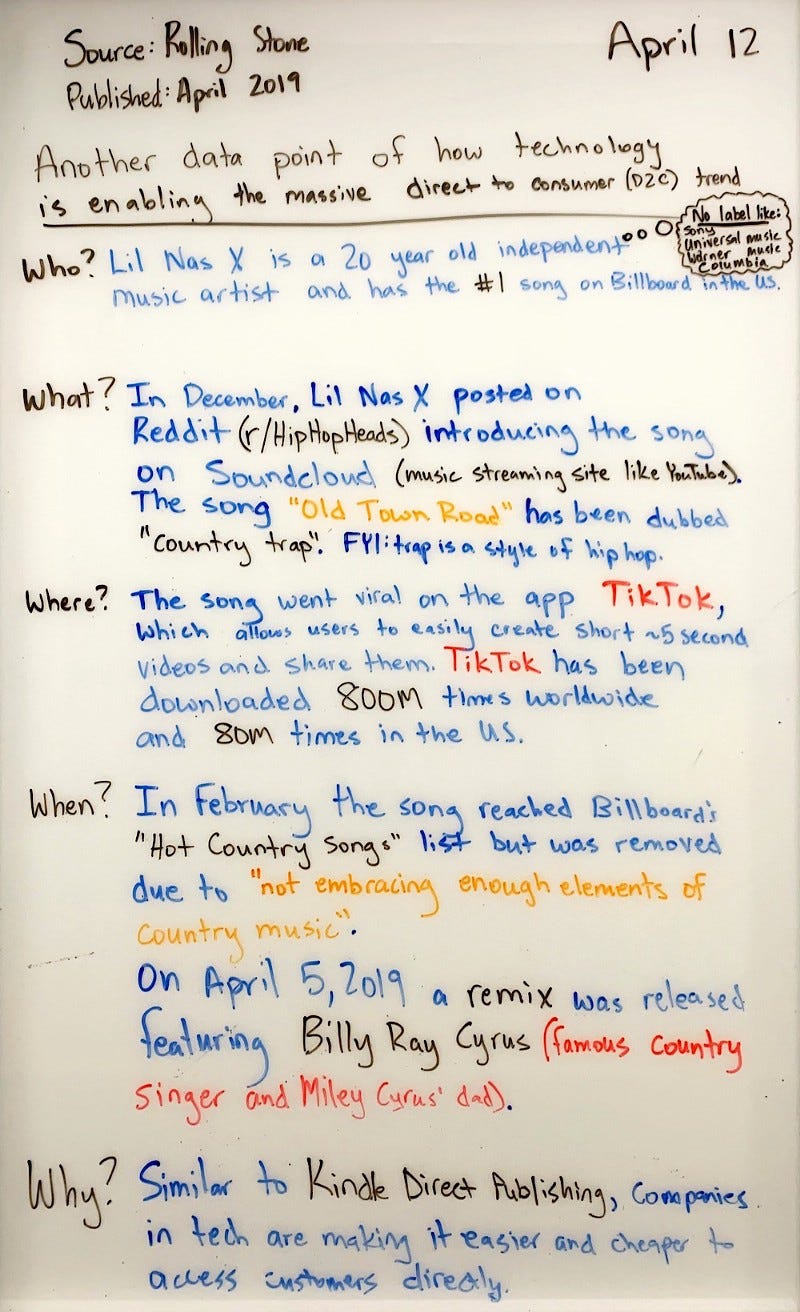 Source: Rolling Stone
April 12
Published: April 2019
Another data point of how technology
is enabling the massive direct to consumer (D2C) trend
No label like:
Sony
Universal music
Warner music
Columbia
Who? Lil Nas X is a 20 year old independent
music artist and has the #1 song on Billboard in the US.
What? In December, Lil Nas X posted on
Reddit (r/HipHopHeads) introducing the song
on Soundcloud (music streaming site like YouTube).
The song "Old Town Road" has been dubbed
"country trap". FYI: trap is a style of hip hop.
Where? The song went viral on the app TikTok,
which allows users to easily create short ~5 second
videos and share them. TikTok has been
downloaded 800M times worldwide
and 80M times in the U.S.
When? In February the song reached Billboard's
"Hot Country Songs" list but was removed
due to "not embracing enough elements of
country music".
On April 5, 2019 a remix was released
featuring Billy Ray Cyrus (famous country
singer and Miley Cyrus' dad).
Why? Similar to Kindle Direct Publishing, companies
in tech are making it easier and cheaper to
access customers directly.